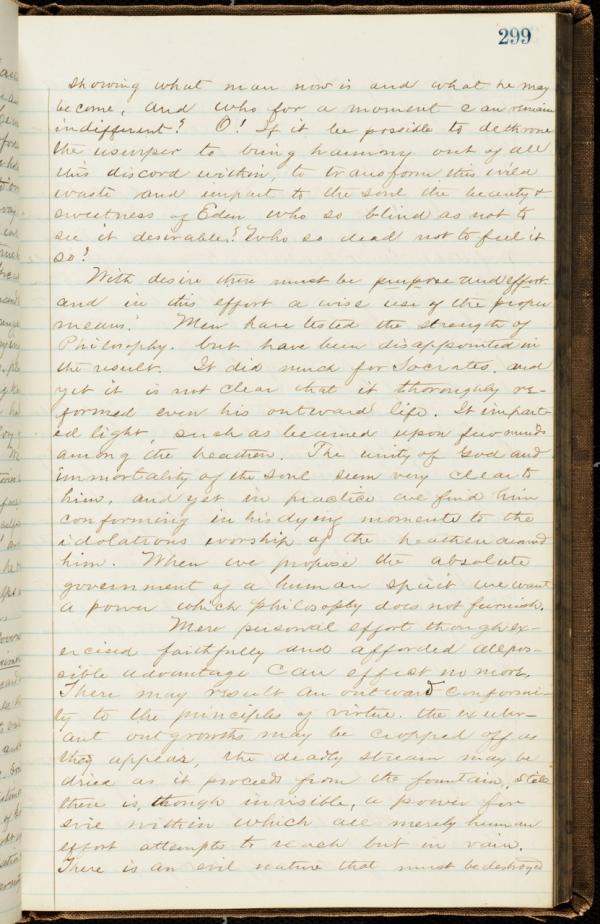 299
showing what man now is and what he may
become, and who for a moment can remain
indifferent? O! If it be possible to dethrone
the usurper to bring harmony out of all
this discord within, to transform this wild
waste and impart to the soul the beauty &
sweetness of Eden who so blind as not to
see it desirable? Who so dead not to feel it
so?
With desire there must be purpose and effort
and in this effort a wise use of the proper
means. Men have tested the strength of
Philosophy. but have been disappointed in
the result. It did much for Socrates, and
yet it is not clear that it thoroughly re-
formed even his outward life. It impart-
ed light, such as beamed upon few minds
among the heathen. The unity of God and
immortality of the soul seem very clear to
him, and yet in practice we find him
conforming in his dying moments to the
idolatrous worship of the heathen around
him. When we propose the absolute
government of a human spirit we want
a power which Philosophy does not furnish.
Mere personal effort though ex-
ercised faithfully and afforded all pos-
sible advantage can effect no more.
There may result an outward conformi-
ty to the principles of virtue. the exuber-
ant outgrowths may be cropped off as
they appear, the deadly stream may be
dried as it proceed from the fountain, still
there is, though invisible, a power for
evil within which all merely human
effort attempts to reach but in vain.
There is an evil nature that must be destroyed